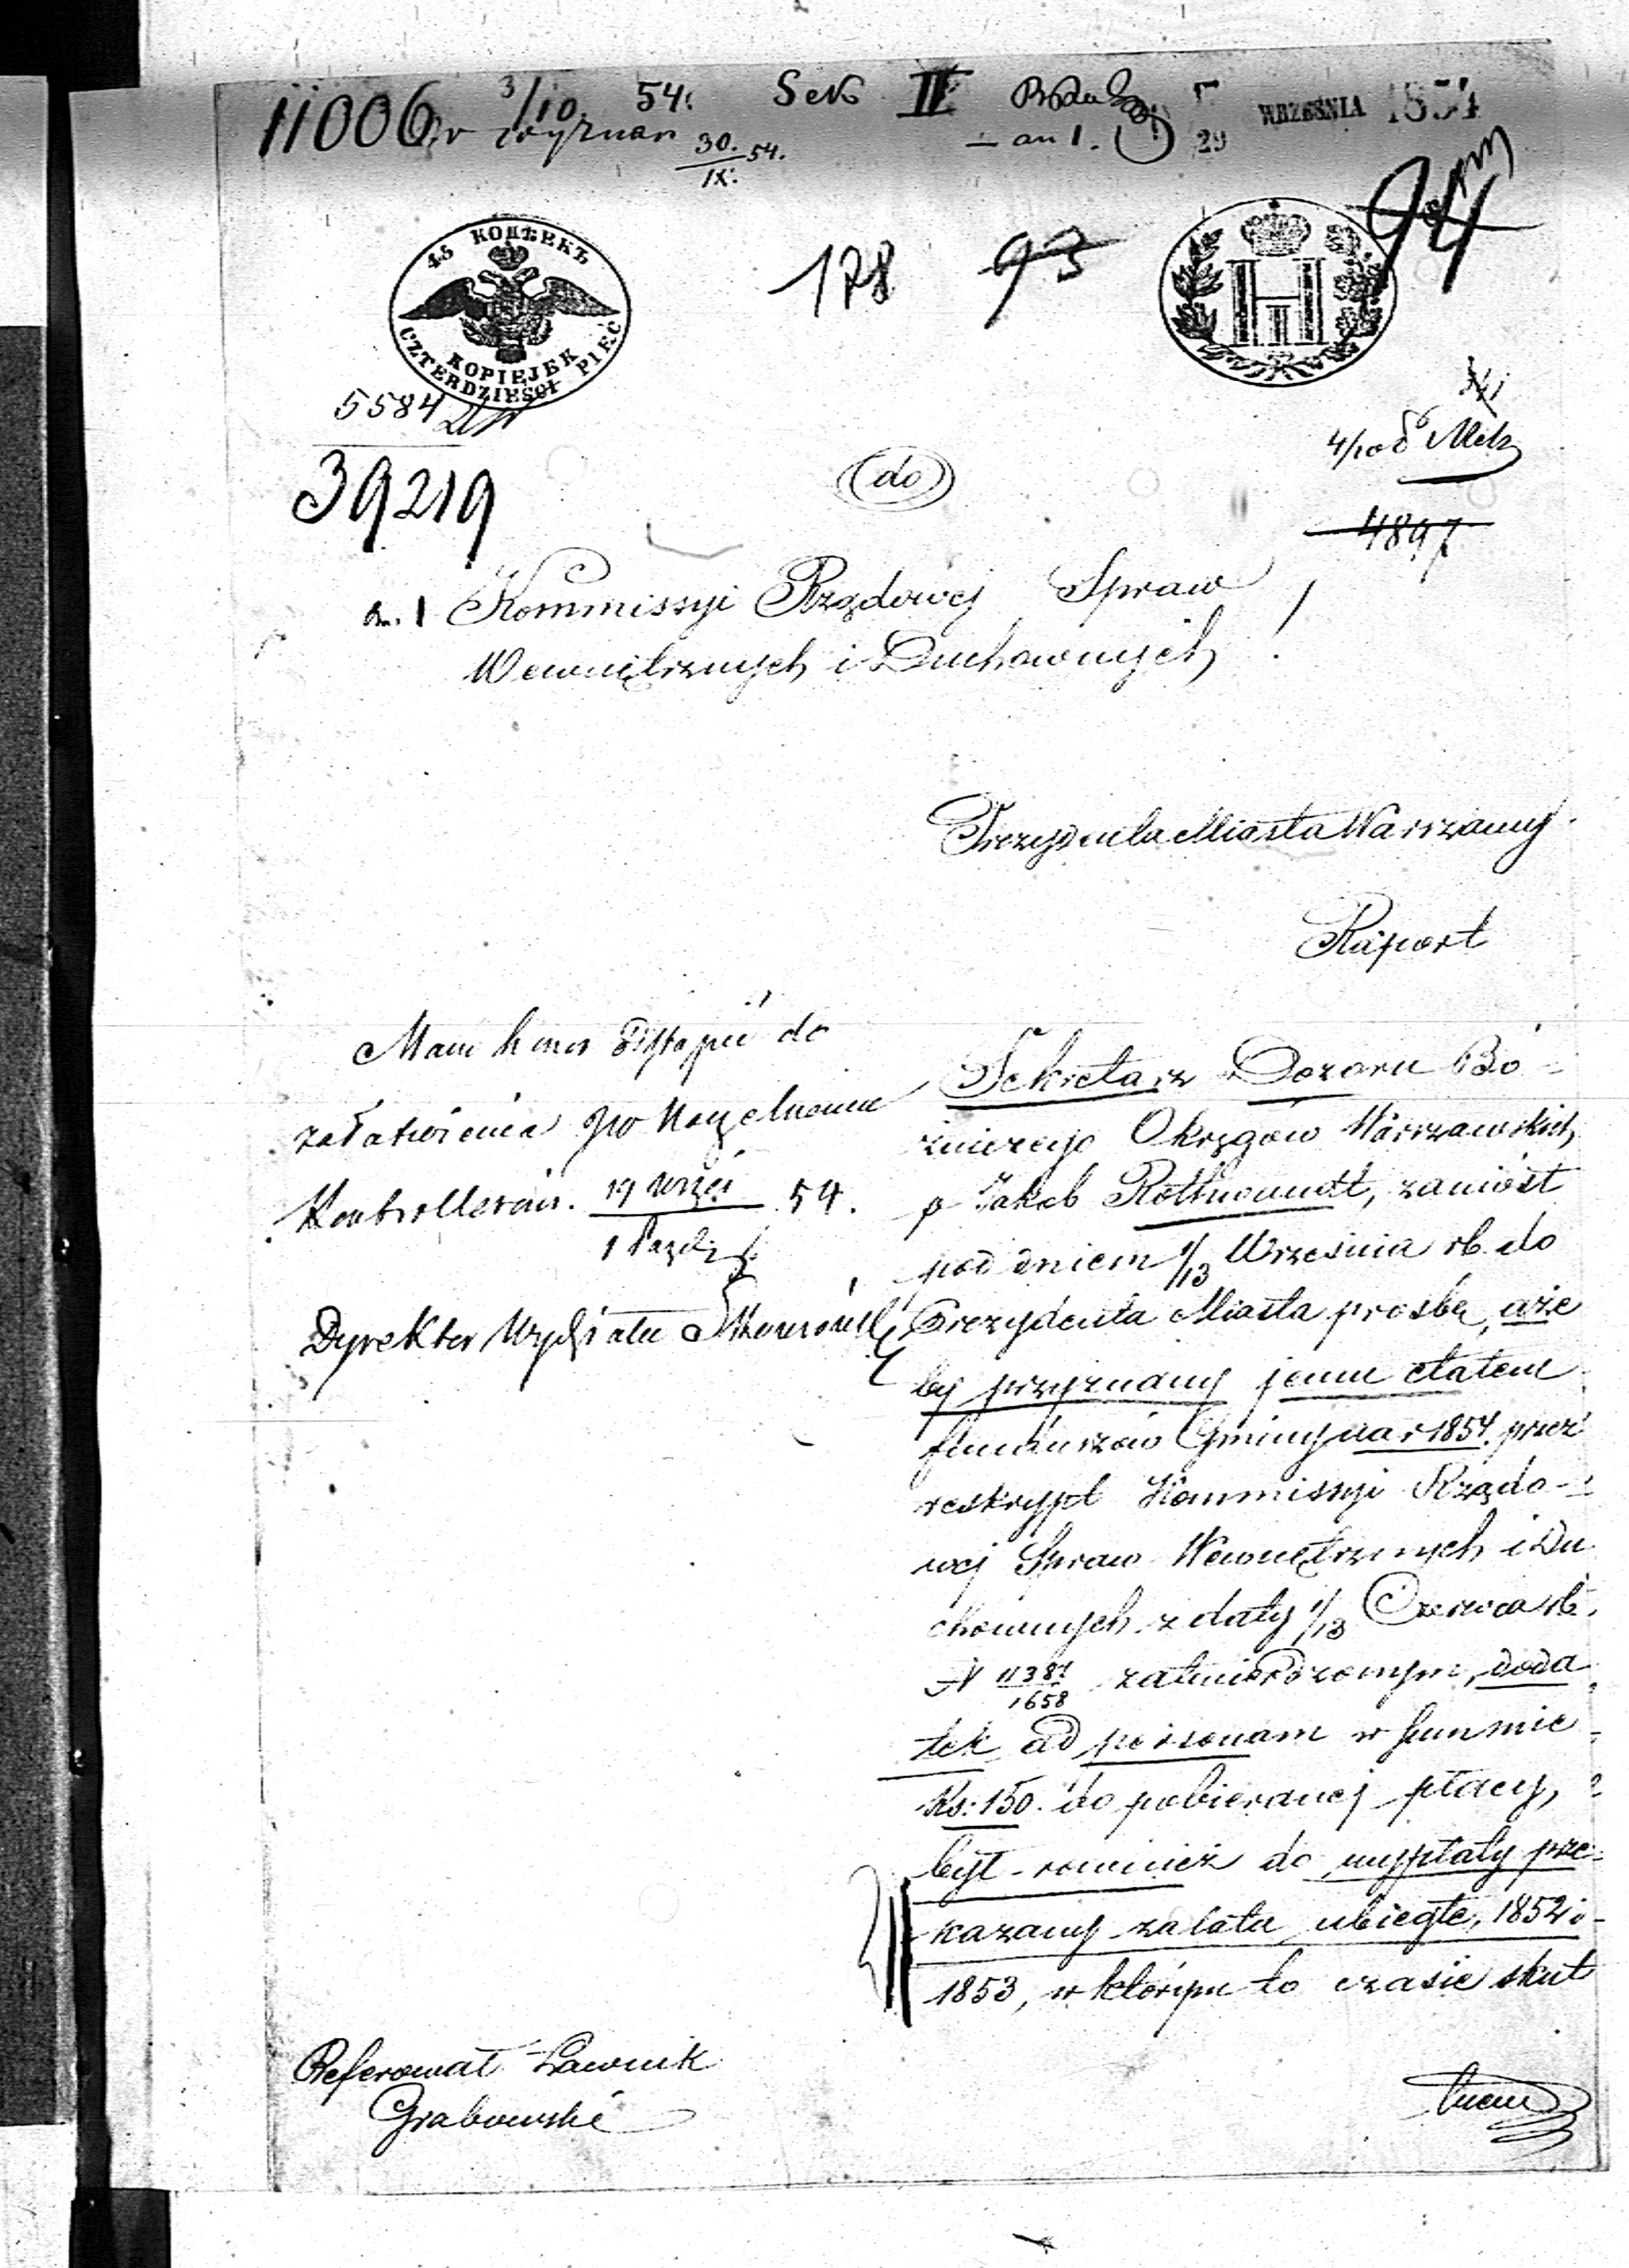 11006 3/10 54. Sek II WRZEŚNIA 1854
30./IX. 54. an 1. 29
45 КОПѢЕКЪ
KOPIEJEK
CZTERDZIEŚCI PIĘĆ
128 93 94
5584
39219
do
4897
Kommissyi Rządowej Spraw
Wewnętrznych i Duchownych
Prezydenta Miasta Warszawy
Raport
Mam honor odstąpić do
załatwienia JW Naczelnikowi
Kontrollerów. 19 Wrześ / 1 Paźdz 54.
Dyrektor Wydziału
Sekretarz Dozoru Bó-
żniczego Okręgów Warszawskich
p Jakob Rothwandt, zaniósł
pod dniem 1/13 Września rb. do
Prezydenta Miasta prośbę, aże
by przyznany jemu etatem
funduszów Gminy na r 1854. przez
reskrypt Kommissyi Rządo-
wej Spraw Wewnętrznych i Du
chownych z daty 1/13 Czerwca rb.
N 11387/1658 zatwierdzonym, doda
tek ad personam w summie
Rs: 150. do pobieranej płacy,
był również do wypłaty prze-
kazany za lata ubiegłe, 1852 i
1853, w którym to czasie skut
Referował Ławnik
Grabowski